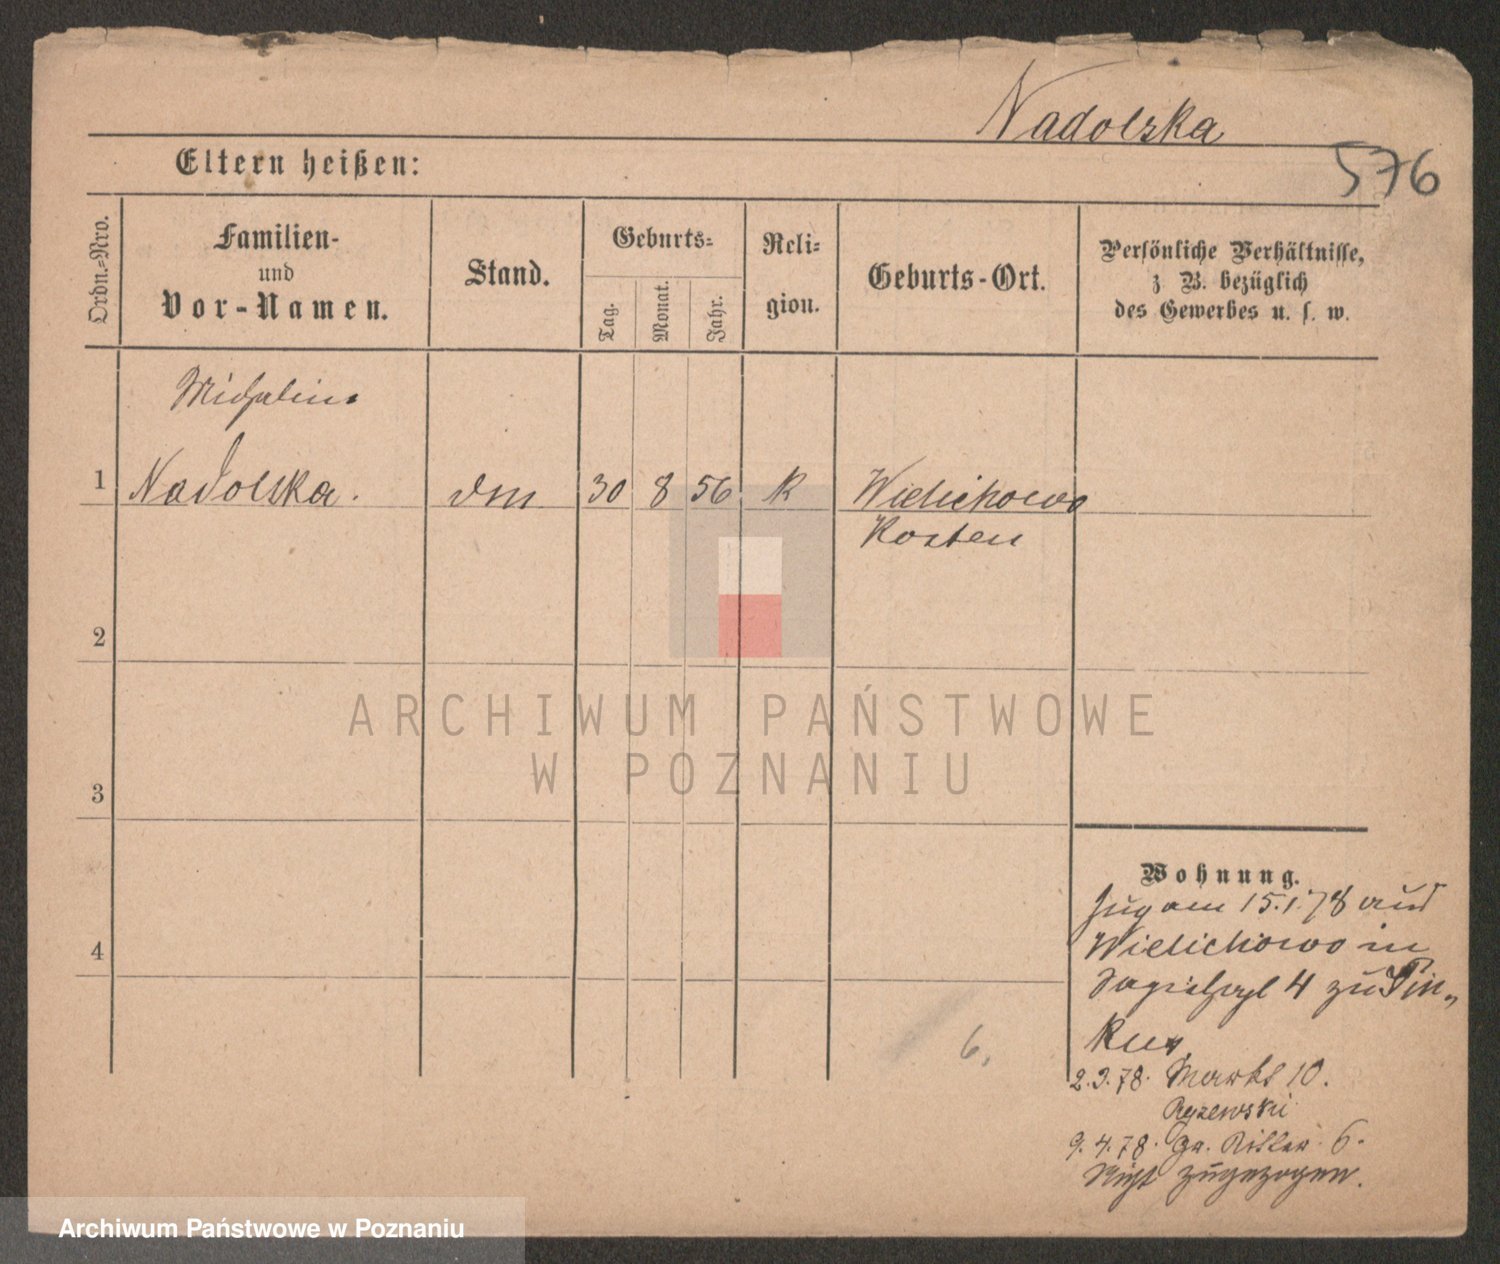 Nadolska
576
Eltern heißen:
Ordn.-Nro.
Familien-
und
Vor-Namen.
Stand.
Geburts-
Tag.
Monat.
Jahr.
Reli-
gion.
Geburts-Ort.
Persönliche Verhältnisse,
z B. bezüglich
des Gewerbes u. s. w.
Michalina
1 Nadolska. 30 8 56 K Wielichowo
Kosten
2
3
4
Wohnung.
Zug am 15.1.78 aus
Wielichowo in
4 zu Pin-
kus
2.3.78. Markt 10.
9.4.78. Gr. Ritter 6.
Nicht zugezogen.
6.
ARCHIWUM PAŃSTWOWE
W POZNANIU
Archiwum Państwowe w Poznaniu